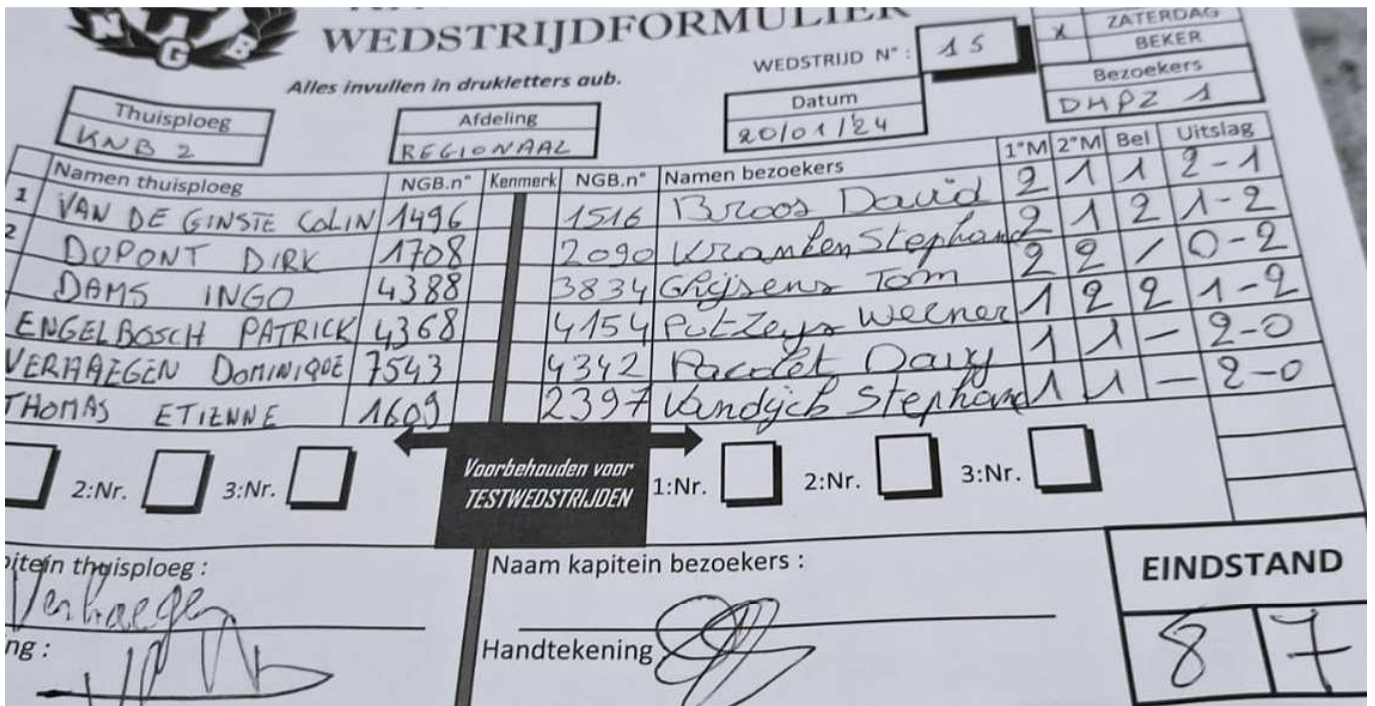 NGB
WEDSTRIJDFORMULIER
Alles invullen in drukletters aub.
WEDSTRIJD N° : 15
X ZATERDAG
BEKER
Thuisploeg
KNB 2
Afdeling
REGIONAAL
Datum
20/01/24
Bezoekers
DHPZ 1
Namen thuisploeg NGB.n° Kenmerk NGB.n° Namen bezoekers 1°M 2°M Bel Uitslag
1 VAN DE GINSTE COLIN 1496 1516 Broos David 2 1 1 2-1
2 DUPONT DIRK 1708 2090 Vranken Stephand 2 1 2 1-2
DAMS INGO 4388 3834 Ghijsens Tom 2 2 / 0-2
ENGELBOSCH PATRICK 4368 4154 Putzeys Werner 1 2 2 1-2
VERHAEGEN DOMINIQUE 7543 4342 Davy 1 1 - 2-0
THOMAS ETIENNE 1609 2397 Vandijck Stephand 1 1 - 2-0
2:Nr. 3:Nr. Voorbehouden voor TESTWEDSTRIJDEN 1:Nr. 2:Nr. 3:Nr.
thuisploeg :
Verhaegen
Naam kapitein bezoekers :
Handtekening
EINDSTAND
8 7